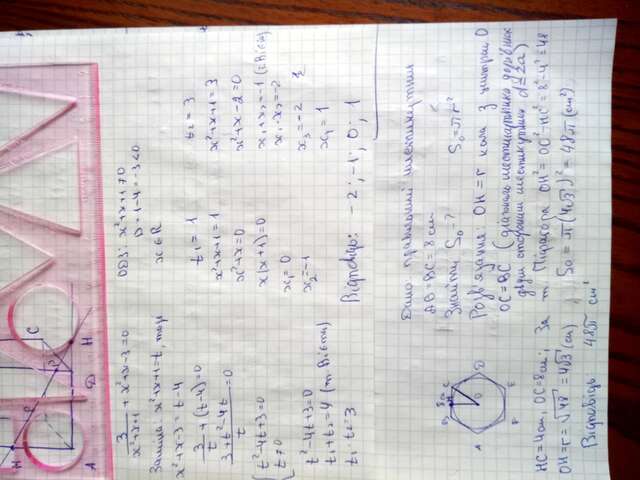 H
P
P
C
A
D
H
3/(x²+x+1) + x²+x-3=0
ОДЗ: x²+x+1≠0
D = 1-4 = -3<0
Заміна: x²+x+1=t, тоді
x ∈ R
x²+x-3 = t-4
3/t + (t-4)=0
(3+t²-4t)/t = 0
{ t²-4t+3=0
t≠0
t²-4t+3=0
t₁+t₂=4 (т. Вієта)
t₁·t₂=3
t₁ = 1
x²+x+1=1
x²+x=0
x(x+1)=0
x₁=0
x₂=-1
t₂ = 3
x²+x+1=3
x²+x-2=0
x₁+x₂=-1 (т. Вієта)
x₁·x₂=-2
x₃=-2
x₄=1
Відповідь: -2; -1; 0; 1
Дано: правильний шестикутник
AB=BC=8 см
Знайти S₀-? S₀=πr²
Розв'язання: OH=r кола з центром O
OC=BC (діагональ шестикутника дорівнює
двум сторонам шестикутника d=2a)
A
B
C
D
E
F
O
HC=4см, OC=8см; За т. Піфагора OH²=OC²-HC²=8²-4²=48
OH=r=√48=4√3 (см) S₀=π(4√3)²=48π (см²)
Відповідь 48π см²